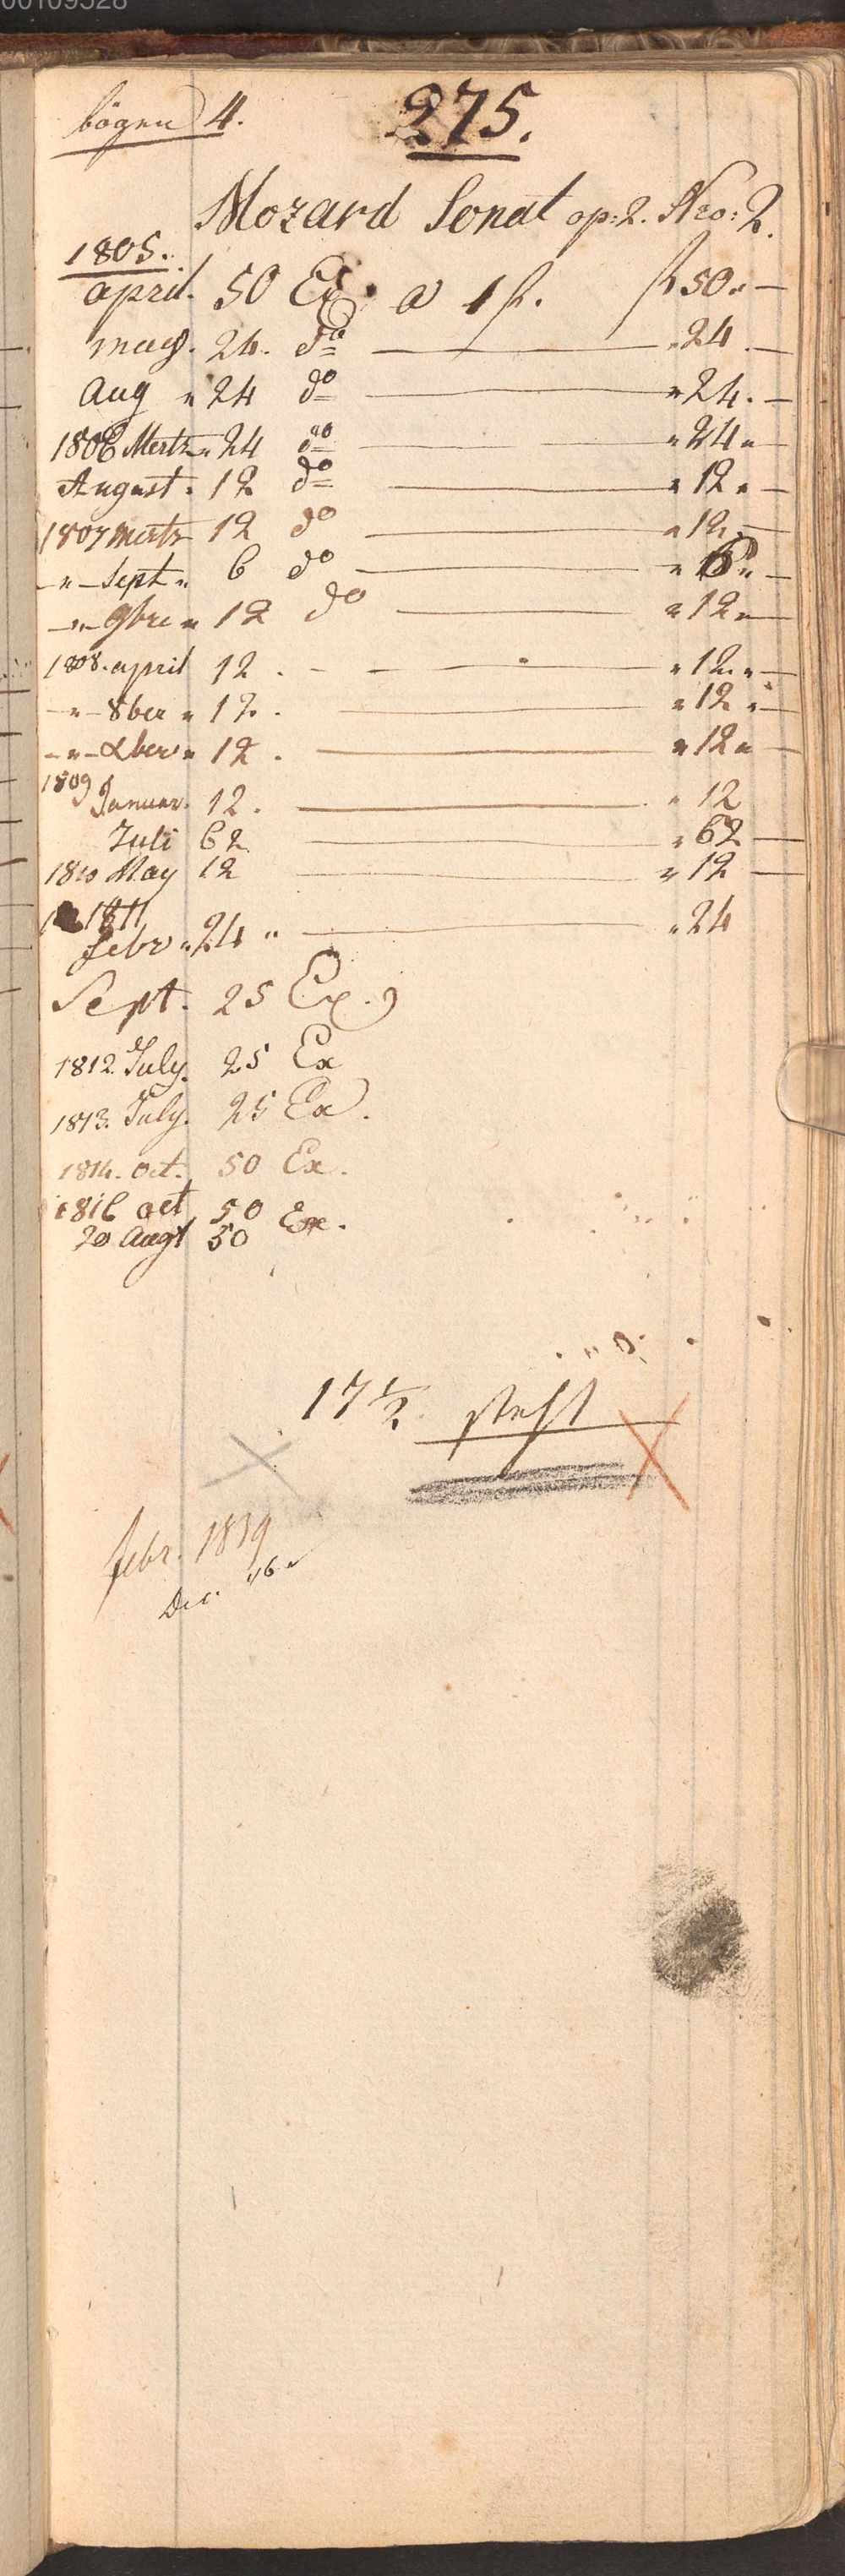 00109528
bögen 4.
275.
Mozard Sonat op: 2. Nro: 2.
1805.
april. 50 Ex. a 1 f. f 50. —
may. 24. do — " 24. —
Aug " 24 do — " 24. —
1806 Mertz " 24 do — " 24 " —
August. 12 do — " 12 " —
1807 Mertz 12 do — " 12. —
— " — Sept " 6 do — " 6 " —
— " — 9bre " 12 do — " 12 " —
1808. april 12. — " 12. " —
— " — 8ber " 12. — " 12 " —
— " — Xber " 12. — " 12 " —
1809
Januar. 12. — " 12
Juli 62 — " 62 —
1810 May 12 — " 12 —
1811
febr " 24 " — " 24
Sept. 25 Ex.
1812. July. 25 Ex
1813. July. 25 Ex.
1814. oct. 50 Ex.
1816 oct 50 Ex.
20 Augt 50
17 1/2 steht
febr. 1819
Dec. "16 "